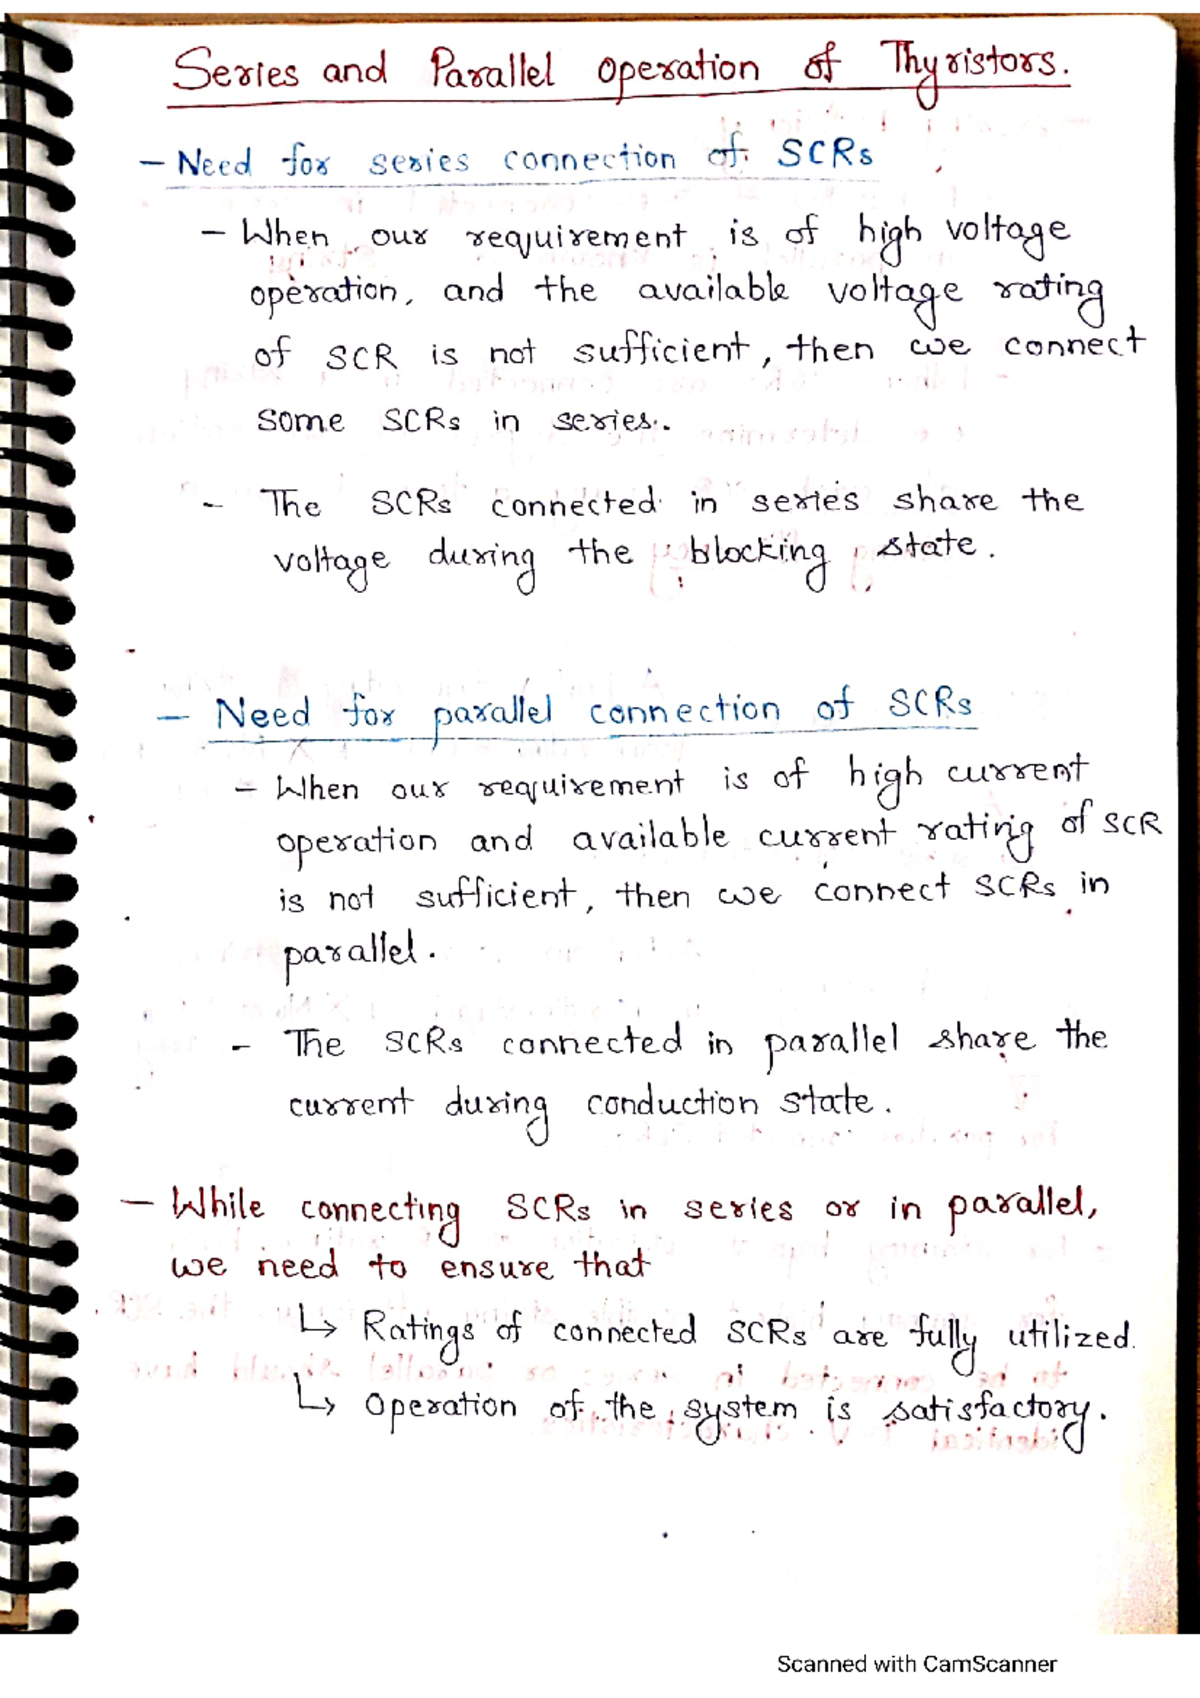 Series and Parallel operation of Thyristors.
- Need for series connection of SCRs
- When our requirement is of high voltage
operation, and the available voltage rating
of SCR is not sufficient, then we connect
some SCRs in series.
- The SCRs connected in series share the
voltage during the blocking state.
- Need for parallel connection of SCRs
- When our requirement is of high current
operation and available current rating of SCR
is not sufficient, then we connect SCRs in
parallel.
- The SCRs connected in parallel share the
current during conduction state.
- While connecting SCRs in series or in parallel,
we need to ensure that
↳ Ratings of connected SCRs are fully utilized.
↳ Operation of the system is satisfactory.
Scanned with CamScanner